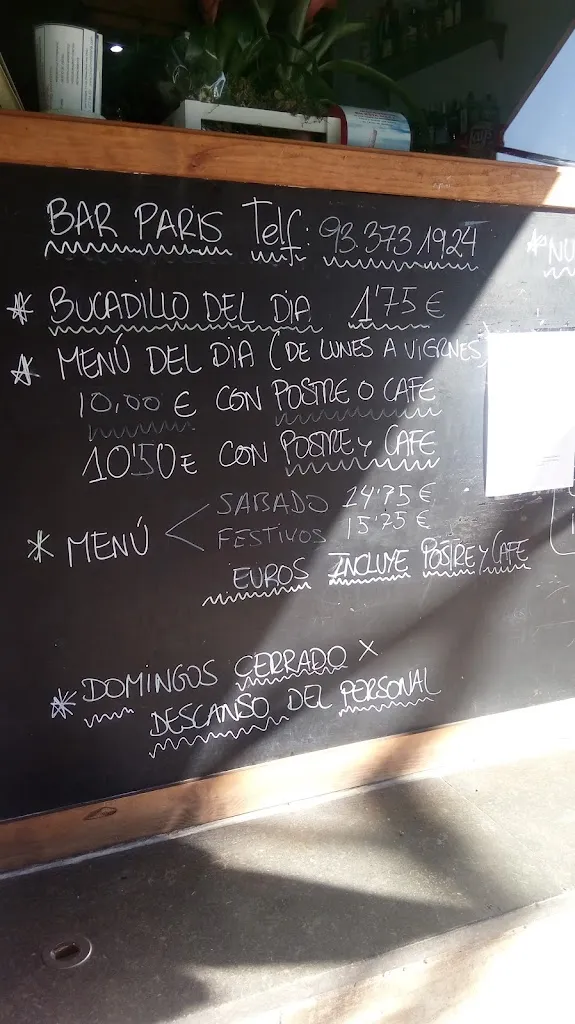 BAR PARIS Telf: 93.373 1924
* NU
* BUCADILLO DEL DIA 1'75 €
* MENÚ DEL DIA (DE LUNES A VIERNES)
10,00 € CON POSTRE O CAFE
10'50 € CON POSTRE Y CAFE
* MENÚ < SABADO 14'75 €
FESTIVOS 15'25 €
EUROS INCLUYE POSTRE Y CAFE
* DOMINGOS CERRADO X
DESCANSO DEL PERSONAL